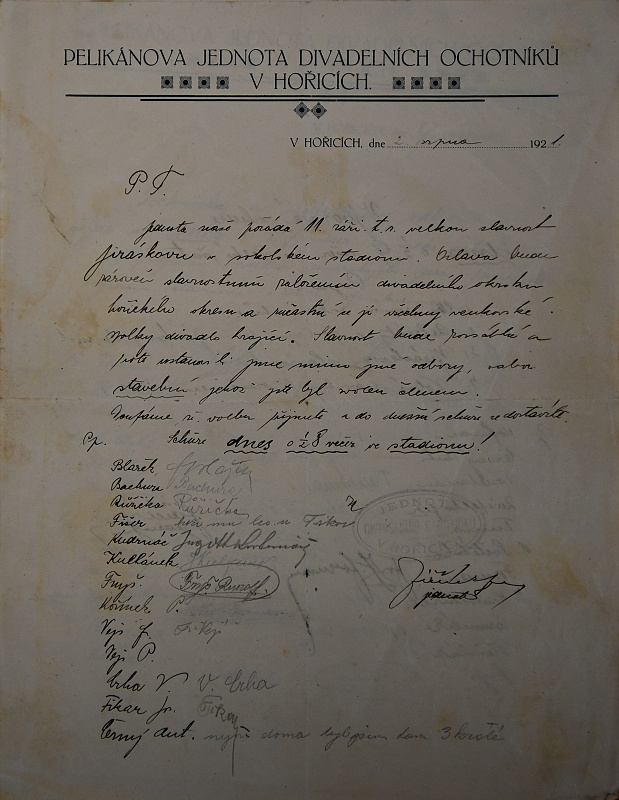 PELIKÁNOVA JEDNOTA DIVADELNÍCH OCHOTNÍKŮ
V HOŘICÍCH.
V HOŘICÍCH, dne 2. srpna 1921.
P. T.
Jednota naše pořádá 11. září t. r. velkou slavnost
Jiráskovu v sokolském stadionu. Oslava bude
zároveň slavnostním založením divadelního okrsku
hořického okresu a súčastní se jí všechny venkovské
spolky divadlo hrající. Slavnost bude rozsáhlá a
proto ustanovili jsme mimo jiné odbory, odbor
stavební jehož jste byl zvolen členem.
Doufáme že volbu přijmete a do dnešní schůze se dostavíte.
Schůze dnes o ½ 8 večer ve stadionu!
Blažek
Bachura Bachura
Růžička Růžička
Fišer
Kudrnáč
Kulhánek
Fryš. Fryš Rudolf.
Kořínek P.
Vejs F. Fr. Vejs
Vejs P.
Crha V. V. Crha
Fikar Jos. Fikar
Černý Ant. není doma byl jsem tam 3 kráte